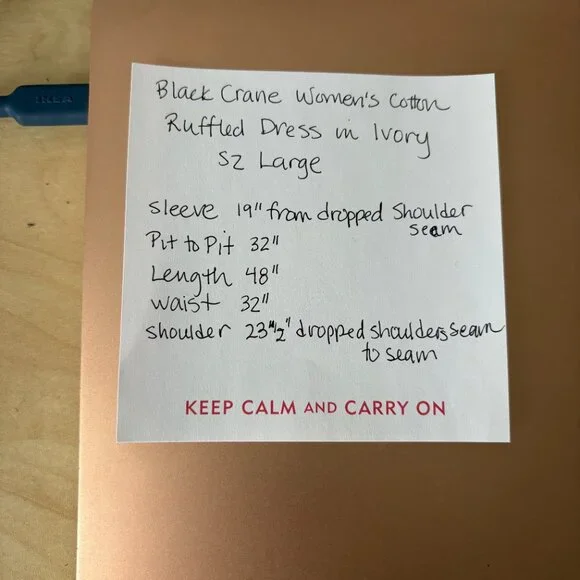 IKEA
Black Crane Women's Cotton
Ruffled Dress in Ivory
SZ Large
Sleeve 19" from dropped Shoulder
seam
Pit to Pit 32"
Length 48"
waist 32"
shoulder 23 1/2" dropped shoulders seam
to seam
KEEP CALM AND CARRY ON